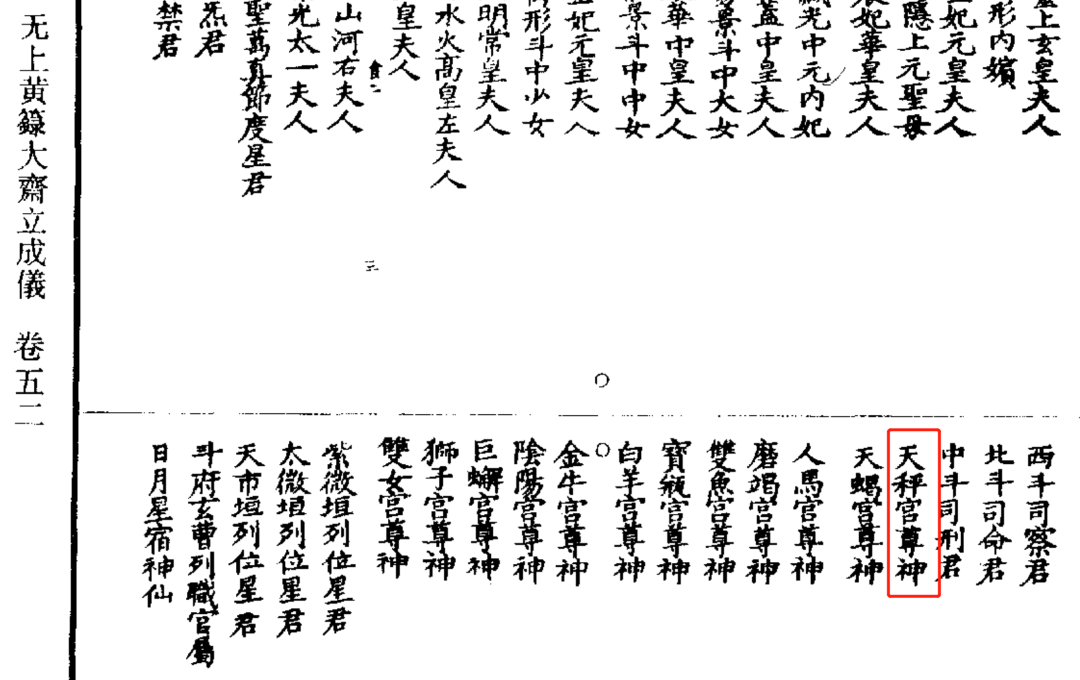 上玄皇夫人
形内嬪
妃元皇夫人
隱上元聖母
妃華皇夫人
光中元内妃
蓋中皇夫人
景斗中大女
華中皇夫人
景斗中中女
妃元皇夫人
形斗中少女
明常皇夫人
水火高皇左夫人
皇夫人
食二
山河右夫人
光太一夫人
聖萬真節度星君
炁君
禁君
三
西斗司察君
北斗司命君
中斗司刑君
天秤宫尊神
天蝎宫尊神
人馬宫尊神
磨竭宫尊神
雙魚宫尊神
寶瓶宫尊神
白羊宫尊神
金牛宫尊神
陰陽宫尊神
巨蠏宫尊神
獅子宫尊神
雙女宫尊神
紫微垣列位星君
太微垣列位星君
天市垣列位星君
斗府玄曹列職官屬
日月星宿神仙
无上黄籙大齋立成儀 卷五二